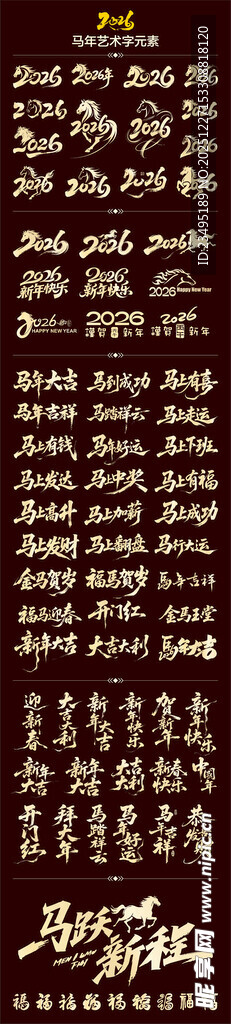 2026
马年艺术字元素
2026 2026年 2026 2026
2026 2026 2026 2026
2026 2026
2026 2026 2026 2026
2026 2026 2026
2026 2026 2026 Happy New Year
新年快乐 新年快乐
2026 2026 2026
HAPPY NEW YEAR 谨贺新年 谨贺新年
马年大吉 马到成功 马上有喜
马年吉祥 马踏祥云 马上走运
马上有钱 马年好运 马上下班
马上发达 马上中奖 马上有福
马上高升 马上加薪 马上成功
马上发财 马上翻盘 马行大运
金马贺岁 福马贺岁 馬年吉祥
福马迎春 开门红 金马玉堂
新年大吉 大吉大利 馬年大吉
迎新春 大吉大利 新年大吉 新年快乐 贺新年 新年快乐
新年大吉 新年大吉 大吉大利 新春快乐 中国年
开门红 拜大年 马踏祥云 马年好运 马年吉祥 恭贺新春
马跃新程
福 福 福 福 福 福 福 福 福
ID:23495189 NO:20251227153308818120
昵享网 www.nipic.cn